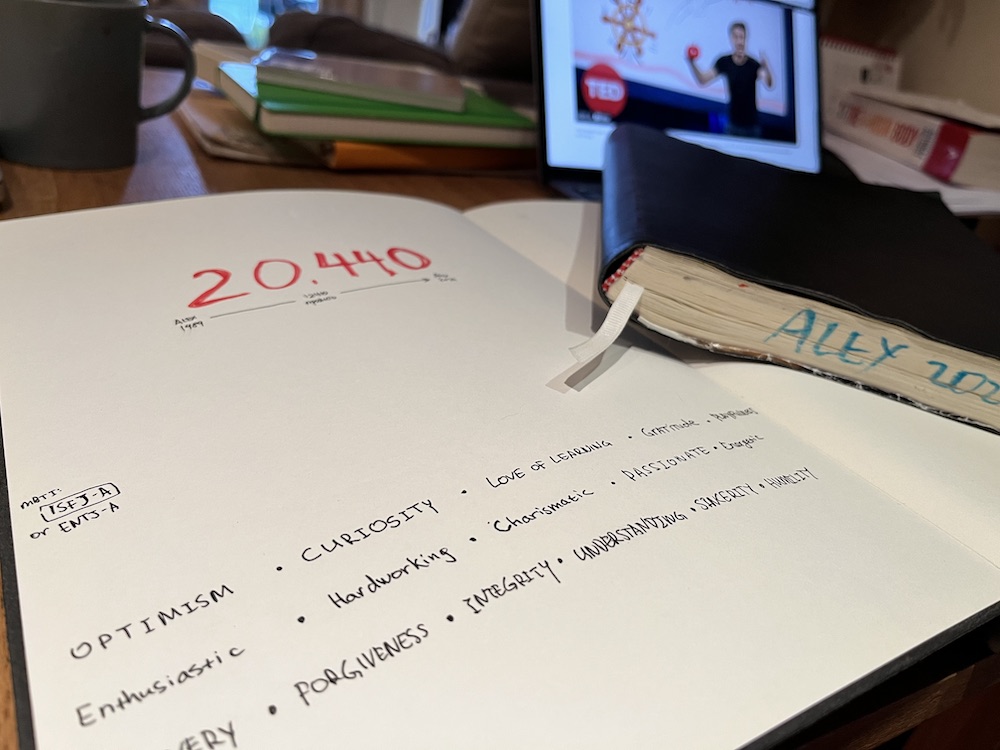 TED
20,440
ALEX
1989
ALEX 202
MBTI:
ISFJ-A
or ENTJ-A
OPTIMISM • CURIOSITY • LOVE OF LEARNING • GRATITUDE • PLAYFULNESS
Enthusiastic • Hardworking • Charismatic • PASSIONATE • Energetic
VERY • FORGIVENESS • INTEGRITY • UNDERSTANDING • SINCERITY • HUMILITY